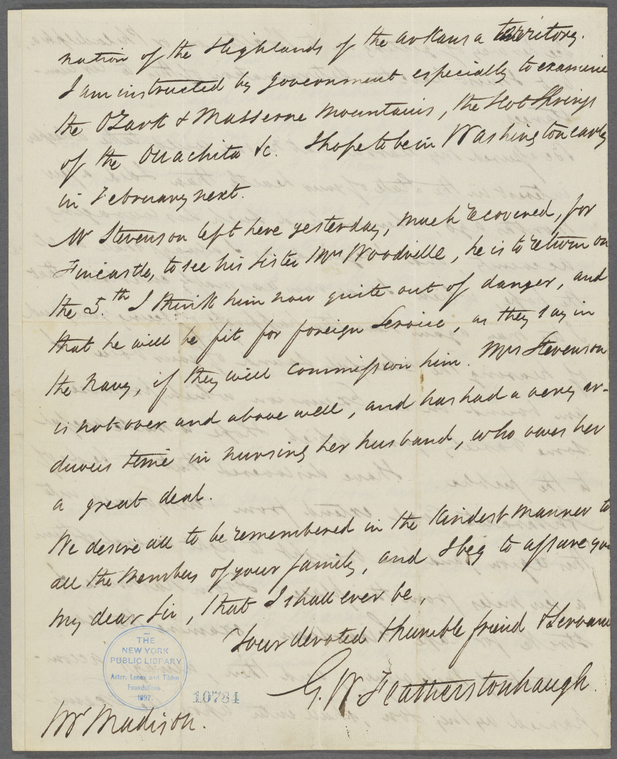 nation of the Highlands of the arkansa territory.
I am instructed by government especially to examine
the Ozark & Masserne Mountains, the Hot Springs
of the Ouachita &c. I hope to be in Washington early
in February next.
Mr Stevenson left here yesterday, much recovered, for
Fincastle, to see his Sister Mrs Woodville, he is to return on
the 5.th I think him now quite out of danger, and
that he will be fit for foreign Service, as they say in
the Navy, if they will commission him. Mrs Stevenson
is not over and above well, and has had a very ar-
duous time in nursing her husband, who owes her
a great deal.
We desire all to be remembered in the kindest manner to
all the members of your family, and I beg to assure you
my dear Sir, that I shall ever be,
Your devoted & humble friend & Servant
G. W Featherstonhaugh.
THE
NEW YORK
PUBLIC LIBRARY
Astor, Lenox and Tilden
Foundations
1897
10784
Mr Madison.